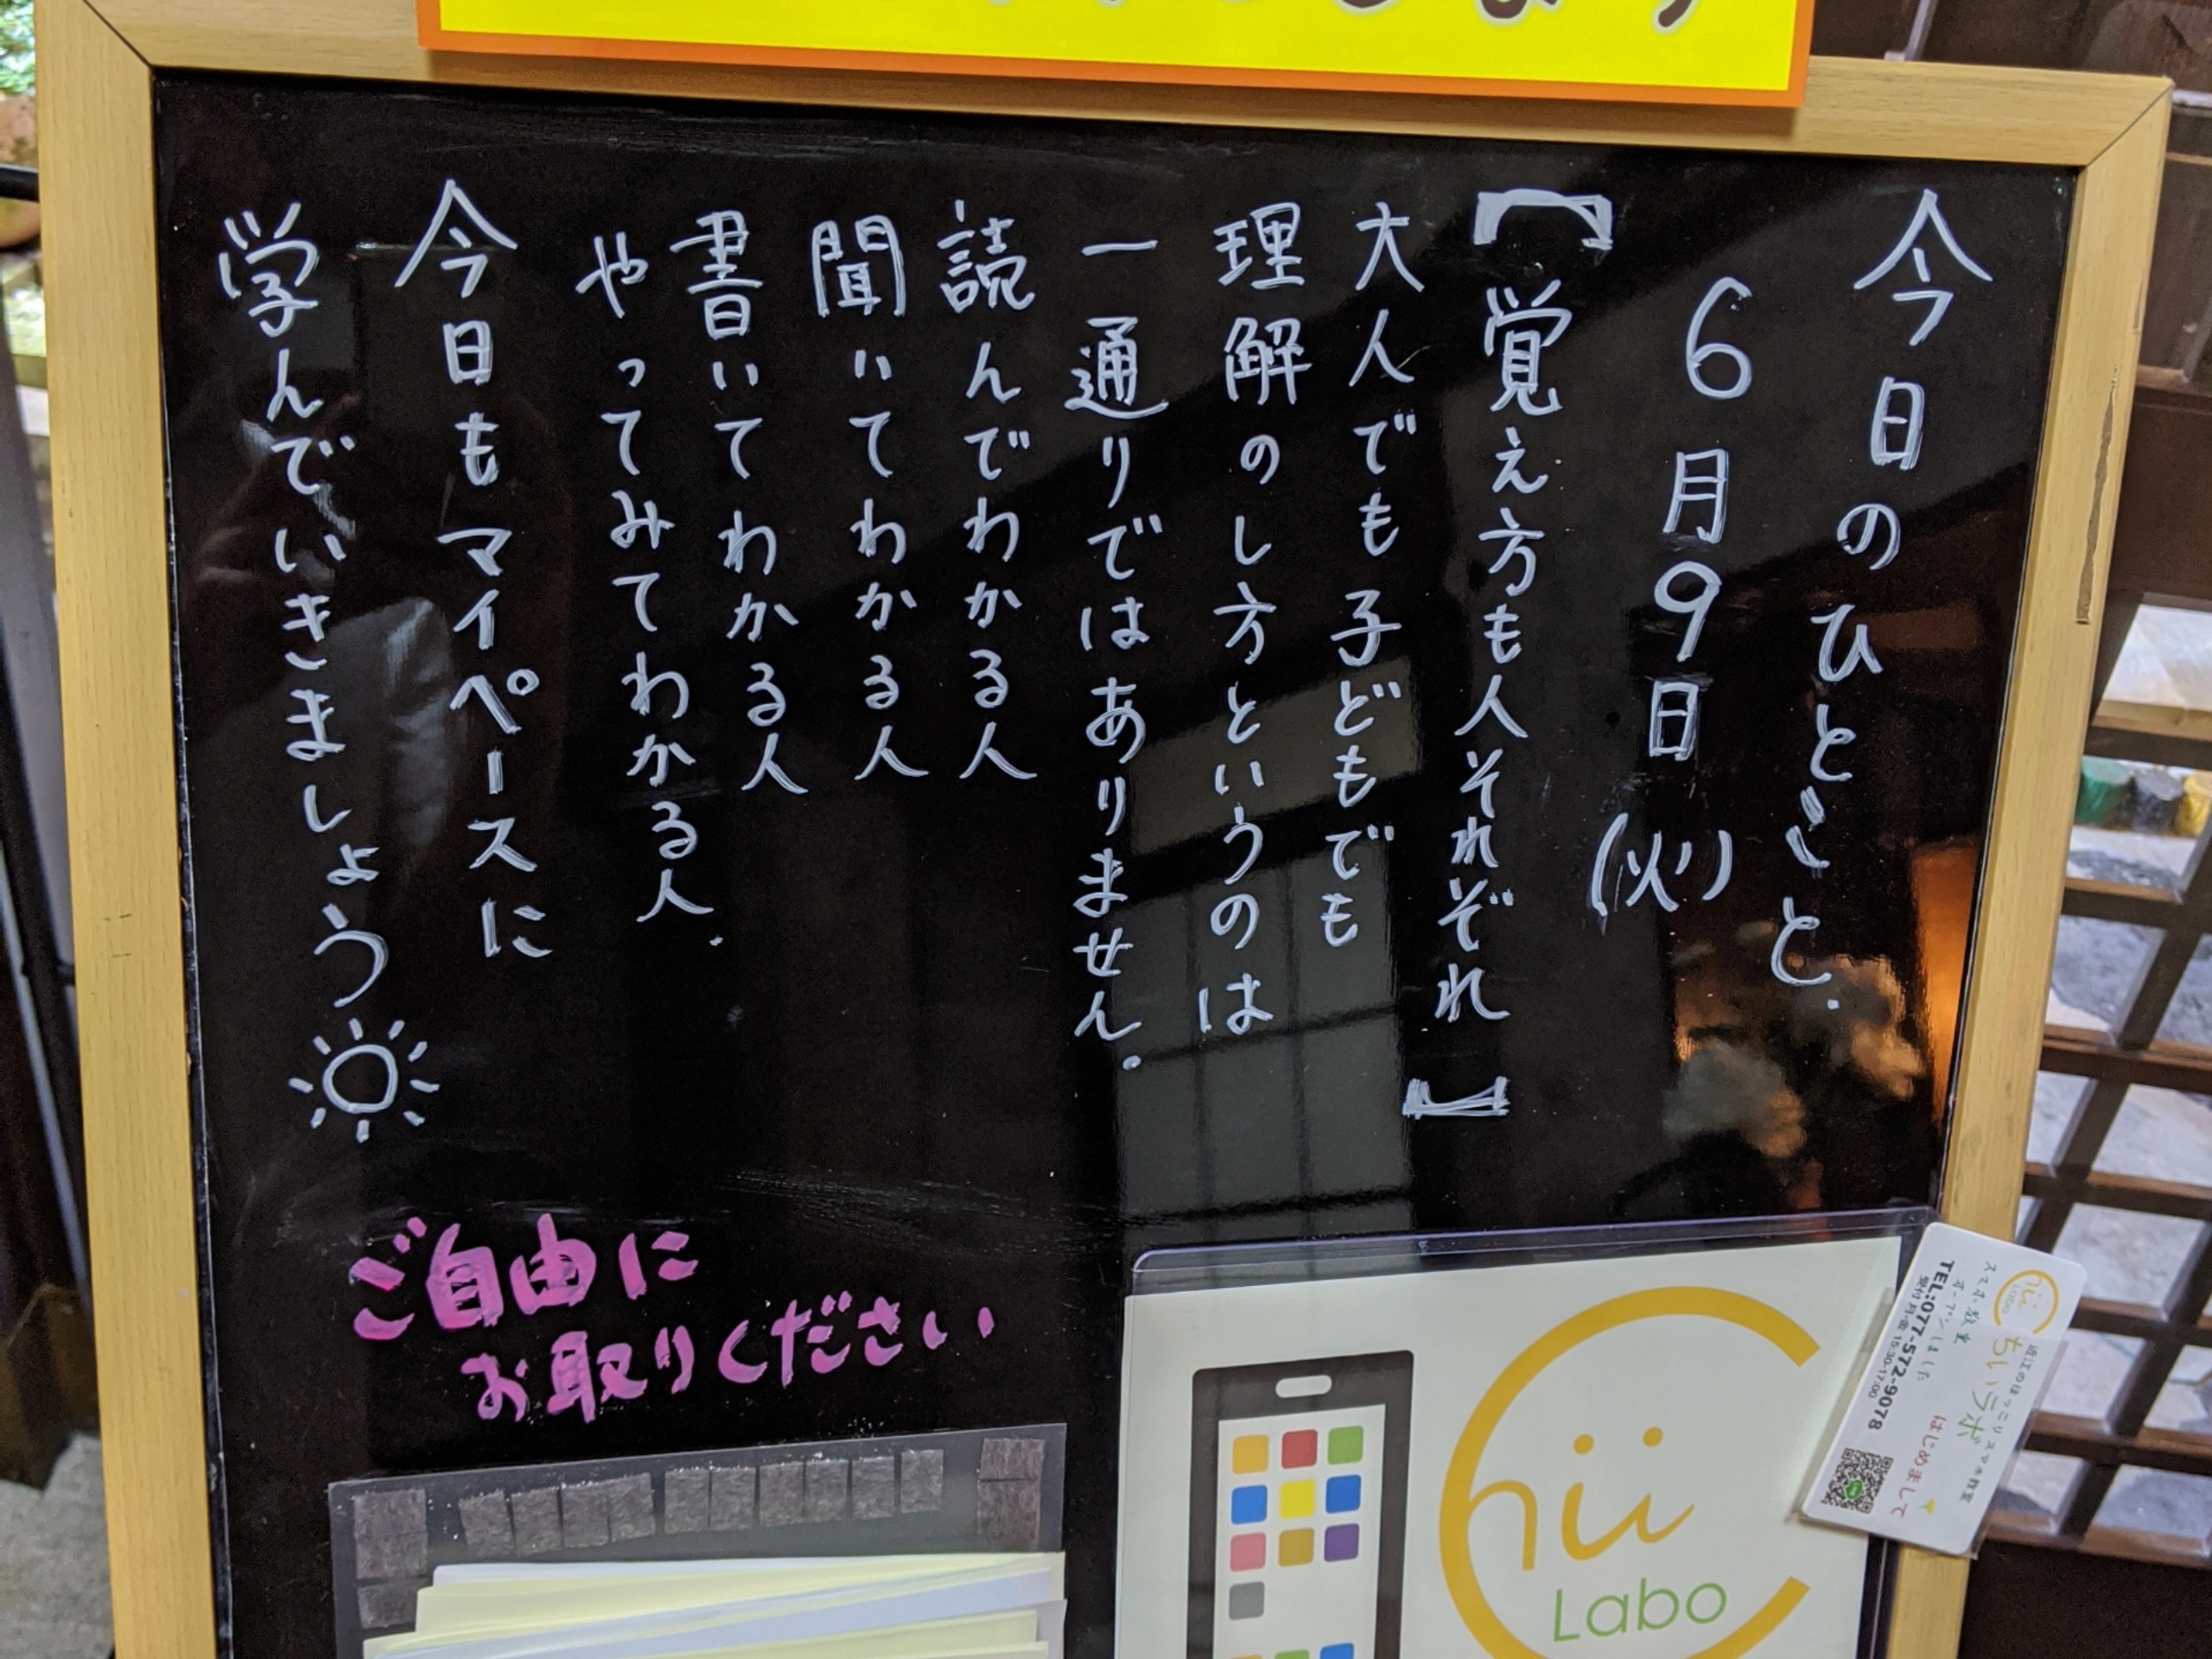 今日のひとごと.
6月9日(火)
【覚え方も人それぞれ】
大人でも子どもでも
理解のし方というのは
一通りではありません.
読んでわかる人
聞いてわかる人
書いてわかる人
やってみてわかる人.
今日もマイペースに
学んでいきましょう
ご自由に
お取りください
Chii
Labo
Chii
Labo
近江のほっこりスマホ教室
ちいラボ
はじめまして
スマホ教室
オープンしました
TEL:0777-572-9078
受付 月-金 15:30-17:00